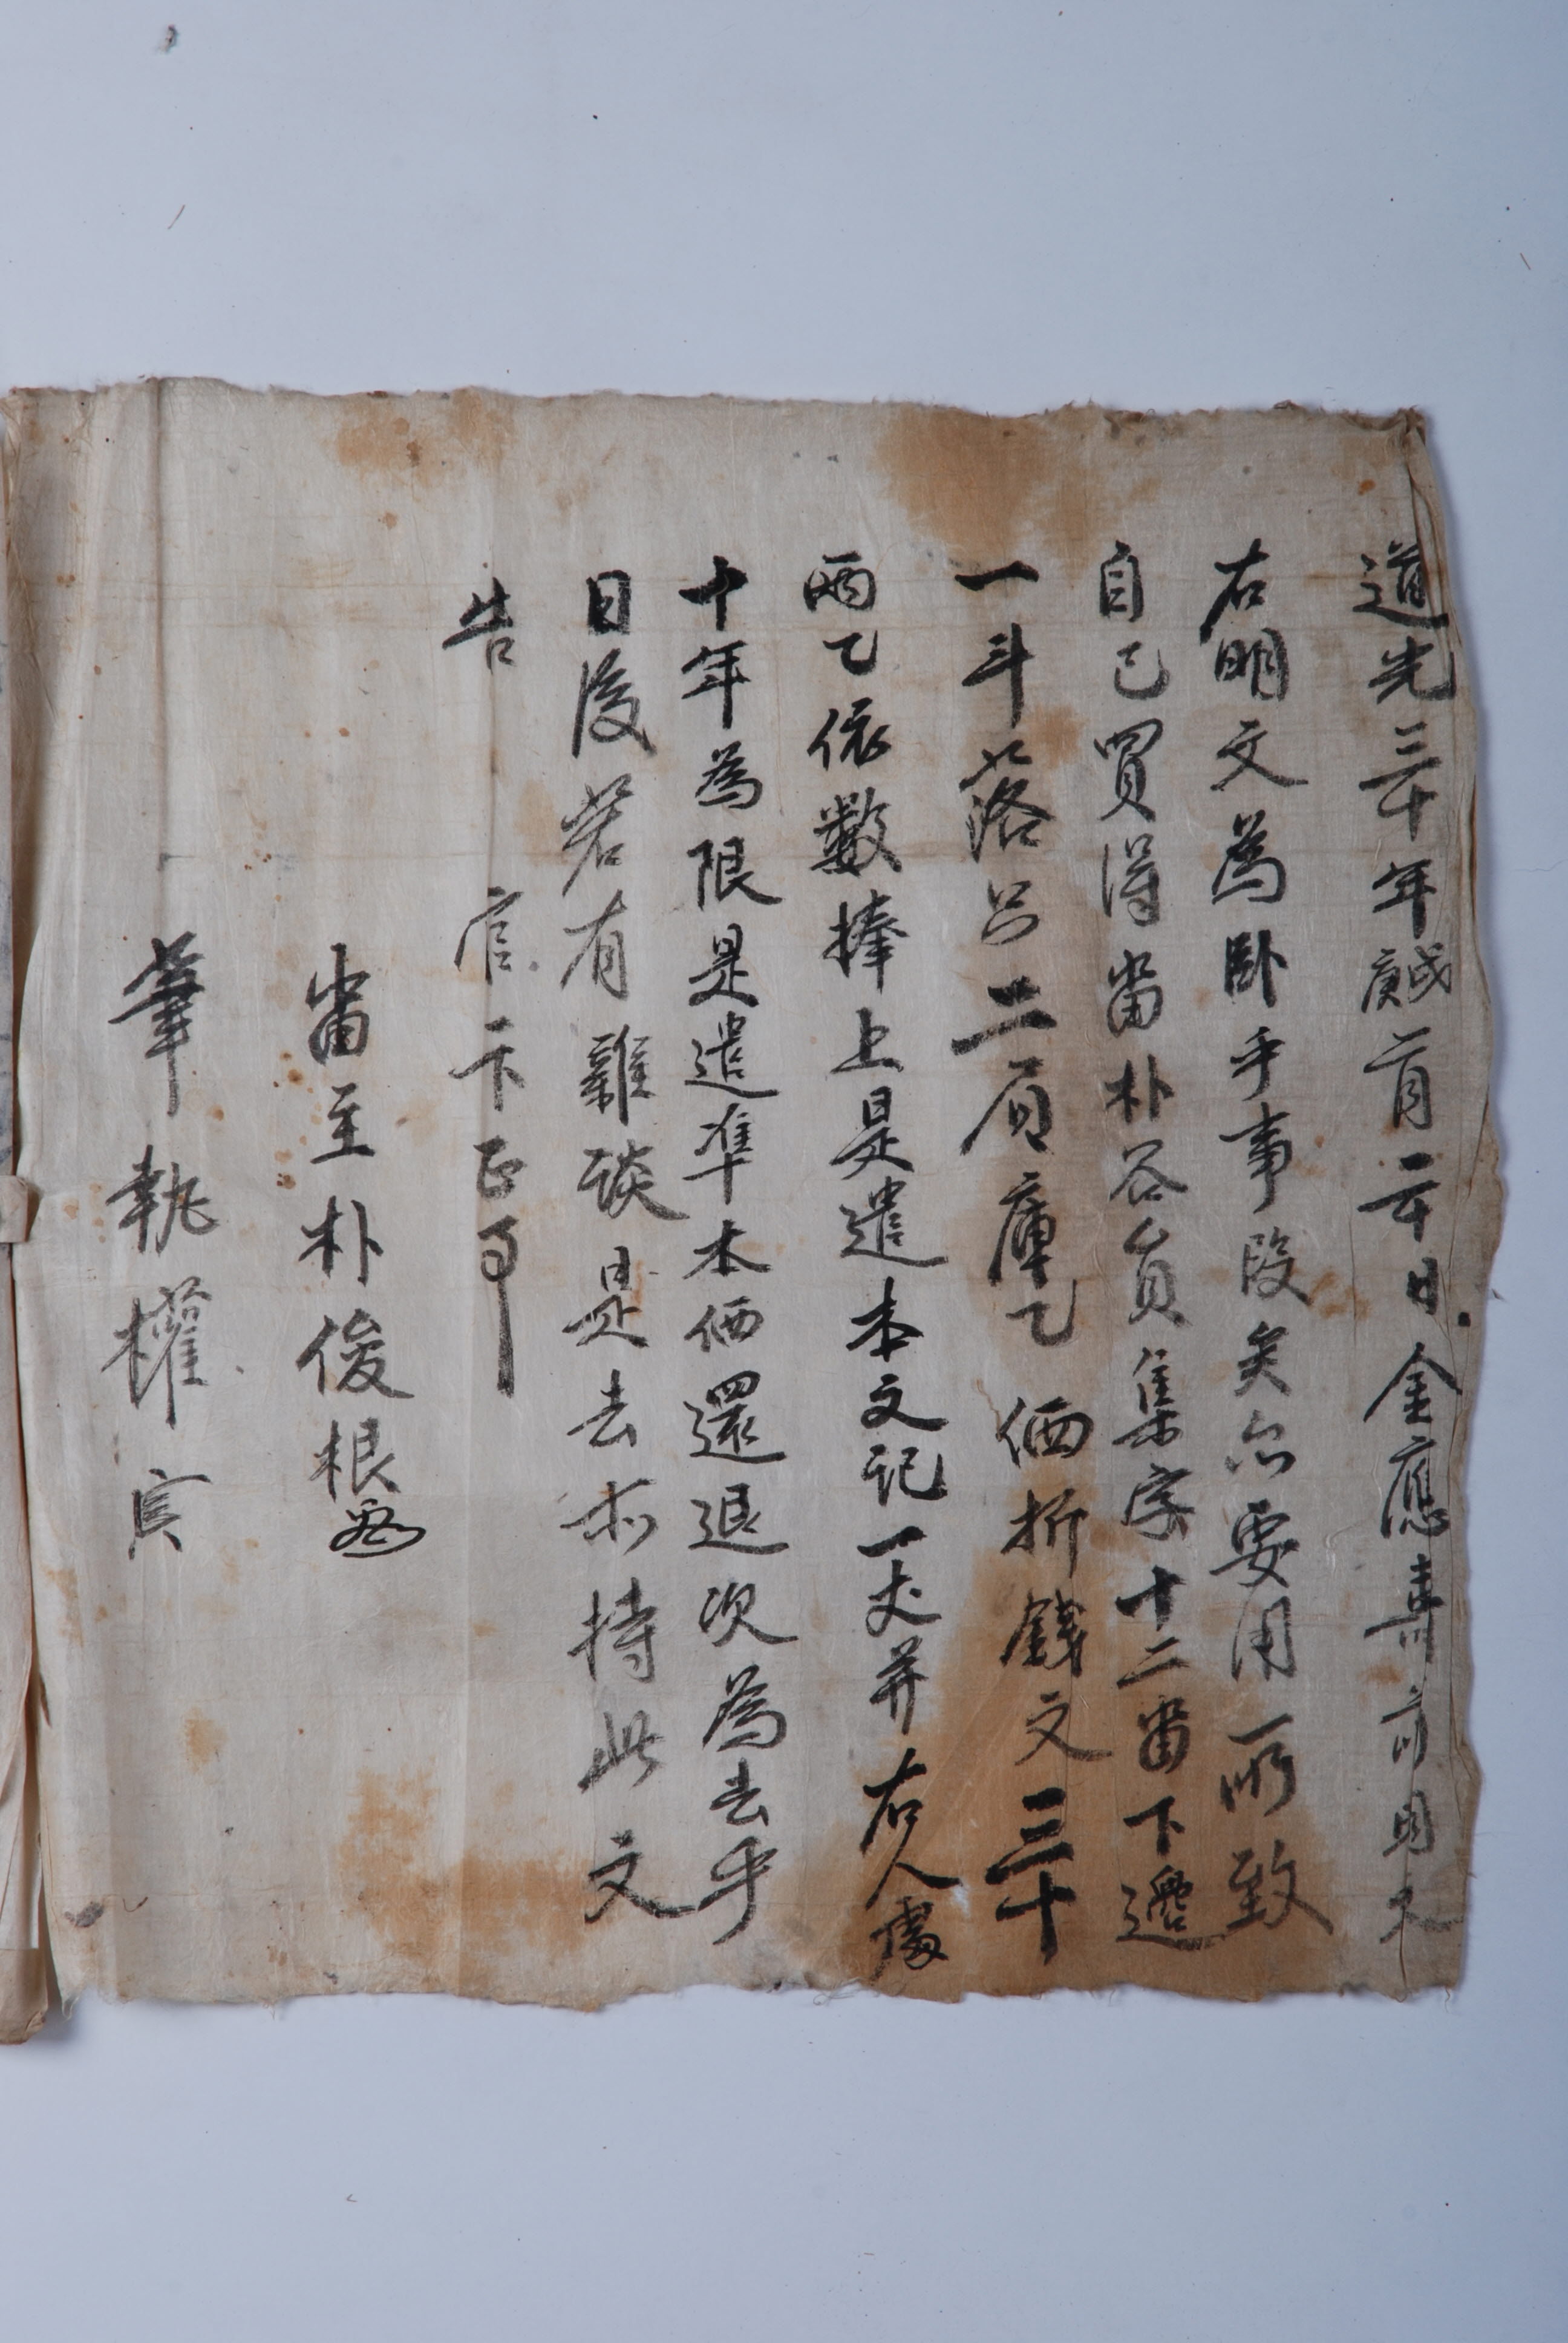 道光三十年庚戌二月二十日金應壽前明文
右明文爲卧乎事段矣亦要用所致
自己買得畓朴谷員集字十二畓下邊
一斗落只二肩庫乙價折錢文三十
兩乙依數捧上是遣本文記一丈并右人處
十年爲限是遣準本価還退次爲去乎
日後若有雜談是去等持此文
告官卞正事
畓主朴俊根
筆執權寅